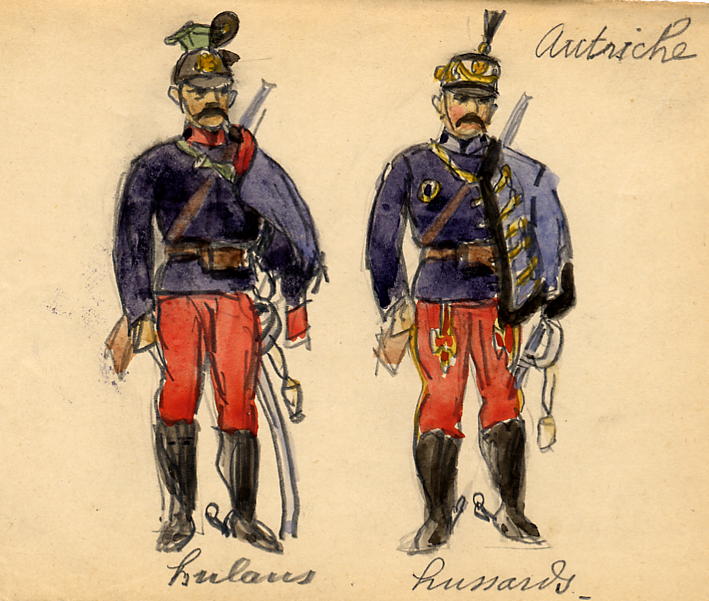 Autriche
hulans
hussards_